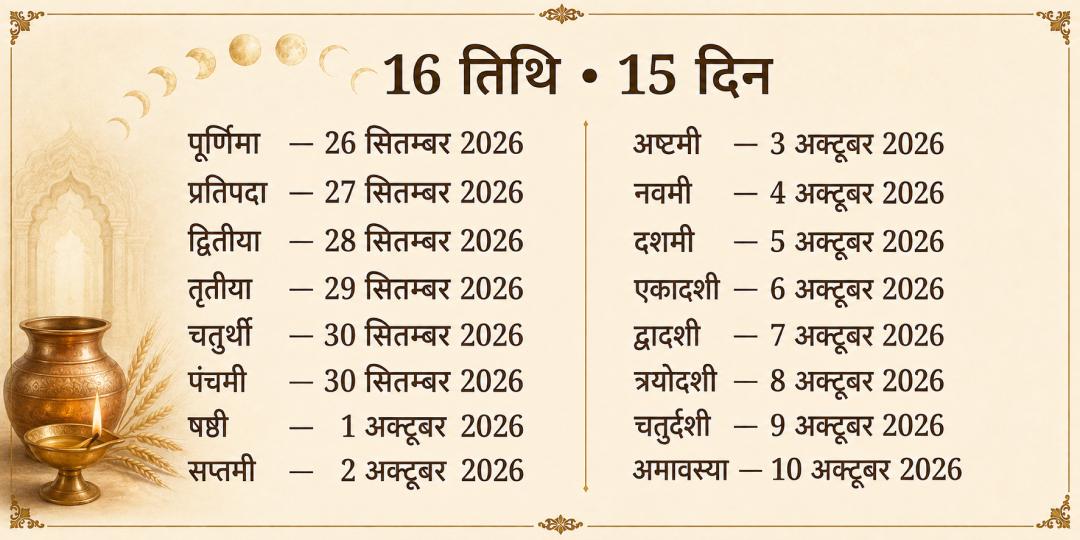 16 तिथि • 15 दिन
पूर्णिमा — 26 सितम्बर 2026
प्रतिपदा — 27 सितम्बर 2026
द्वितीया — 28 सितम्बर 2026
तृतीया — 29 सितम्बर 2026
चतुर्थी — 30 सितम्बर 2026
पंचमी — 30 सितम्बर 2026
षष्ठी — 1 अक्टूबर 2026
सप्तमी — 2 अक्टूबर 2026
अष्टमी — 3 अक्टूबर 2026
नवमी — 4 अक्टूबर 2026
दशमी — 5 अक्टूबर 2026
एकादशी — 6 अक्टूबर 2026
द्वादशी — 7 अक्टूबर 2026
त्रयोदशी — 8 अक्टूबर 2026
चतुर्दशी — 9 अक्टूबर 2026
अमावस्या — 10 अक्टूबर 2026